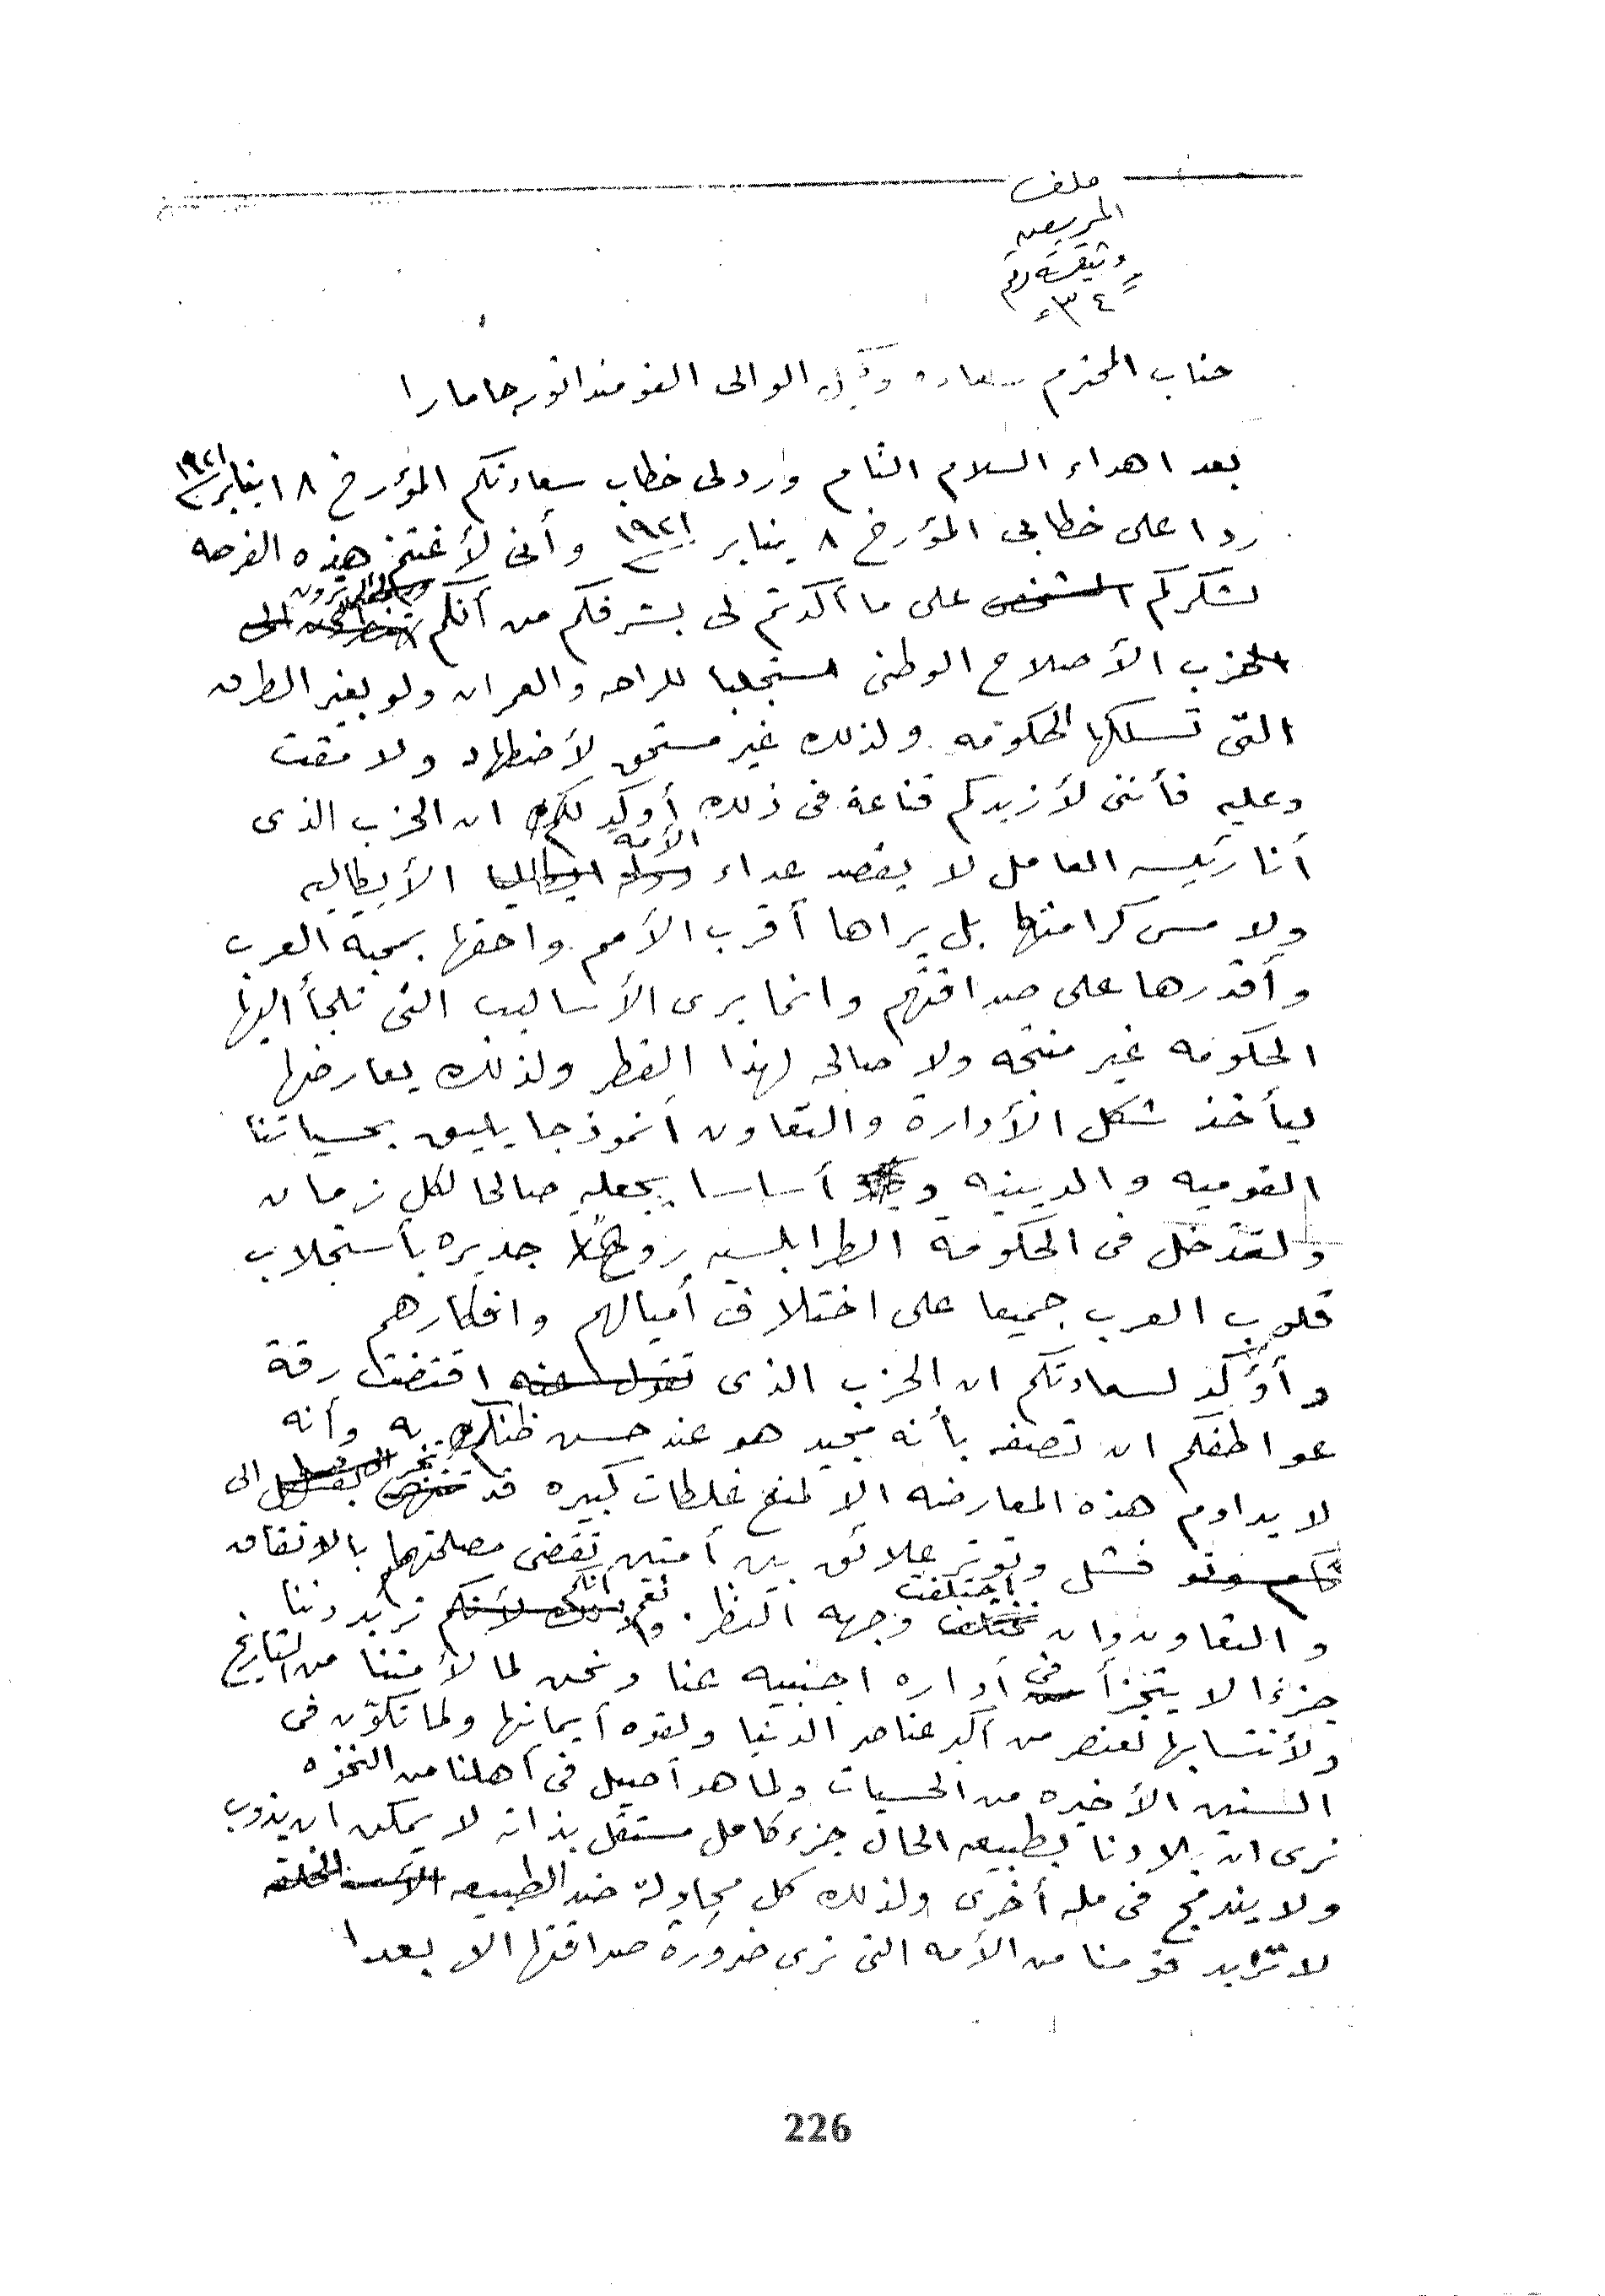 ملف
المريض
وثيقة رقم
٣٤
جناب المحترم سعادة وكيل الوالى القومندانور حامارا
بعد اهداء السلام التام ورد لى خطاب سعادتكم المؤرخ ١٨ يناير ١٩٢١
ردا على خطابى المؤرخ ٨ يناير ١٩٢١ وأنى لأغتنم هذه الفرصه
لشكركم على ما أكدتم لى بشرفكم من أنكم ترون
الحزب الأصلاح الوطنى مستجلبا للراحه والعمران ولو بغير الطرق
التى تسلكها الحكومه ولذلك غير مستحق لأضطهاد ولا مقت
وعليه فأننى لأزيدكم قناعة فى ذلك أوكد لكم ان الحزب الذى
أنا رئيسه العامل لا يقصد عداء الأمه الأيطاليه
ولا مس كرامتها بل يراها أقرب الأمم واحقها بمحبة العرب
وأقدرها على صداقتهم وانما يرى الأساليب التى تلجأ اليها
الحكومه غير منتجه ولا صالحه لهذا القطر ولذلك يعارضها
ليأخذ شكل الأدارة والتعاون أنموذجا يليق بحسياتنا
القوميه والدينيه و أساسا يجعله صالحا لكل زمان
ولقد دخل فى الحكومة الطرابلسيه روحا جديره بأستجلاب
قلوب العرب جميعا على اختلاف أميالهم وافكارهم
وأؤكد لسعادتكم ان الحزب الذى اقتضت رقة
عواطفكم ان تصفه بأنه مجيد هو عند حسن ظنكم به وأنه
لا يداوم هذه المعارضه الا لمنع غلطات كبيره قد تجر الى
فشل وتوتر علائق بين أمتين تقضى مصلحتهما بالاتفاق
والتعاون وان اختلفت وجهه النظر. نعم انكم تريدوننا
جزءا لا يتجزأ فى أداره اجنبيه عنا ونحن لما لأمتنا من التاريخ
ولأنتسابها لعنصر من أكبر عناصر الدنيا ولقوه أيمانها ولما تكوّن فى
السنين الأخيره من الحسيات ولما هو أصيل فى أهلنا من النخوه
نرى ان بلادنا بطبيعه الحال جزء كامل مستقل بذاته لا يمكن ان يذوب
ولا يندمج فى مله أخرى ولذلك كل محاولة ضد الطبيعه
لا تزيد قومنا من الأمه التى نرى ضرورة صداقتها الا بعدا
226